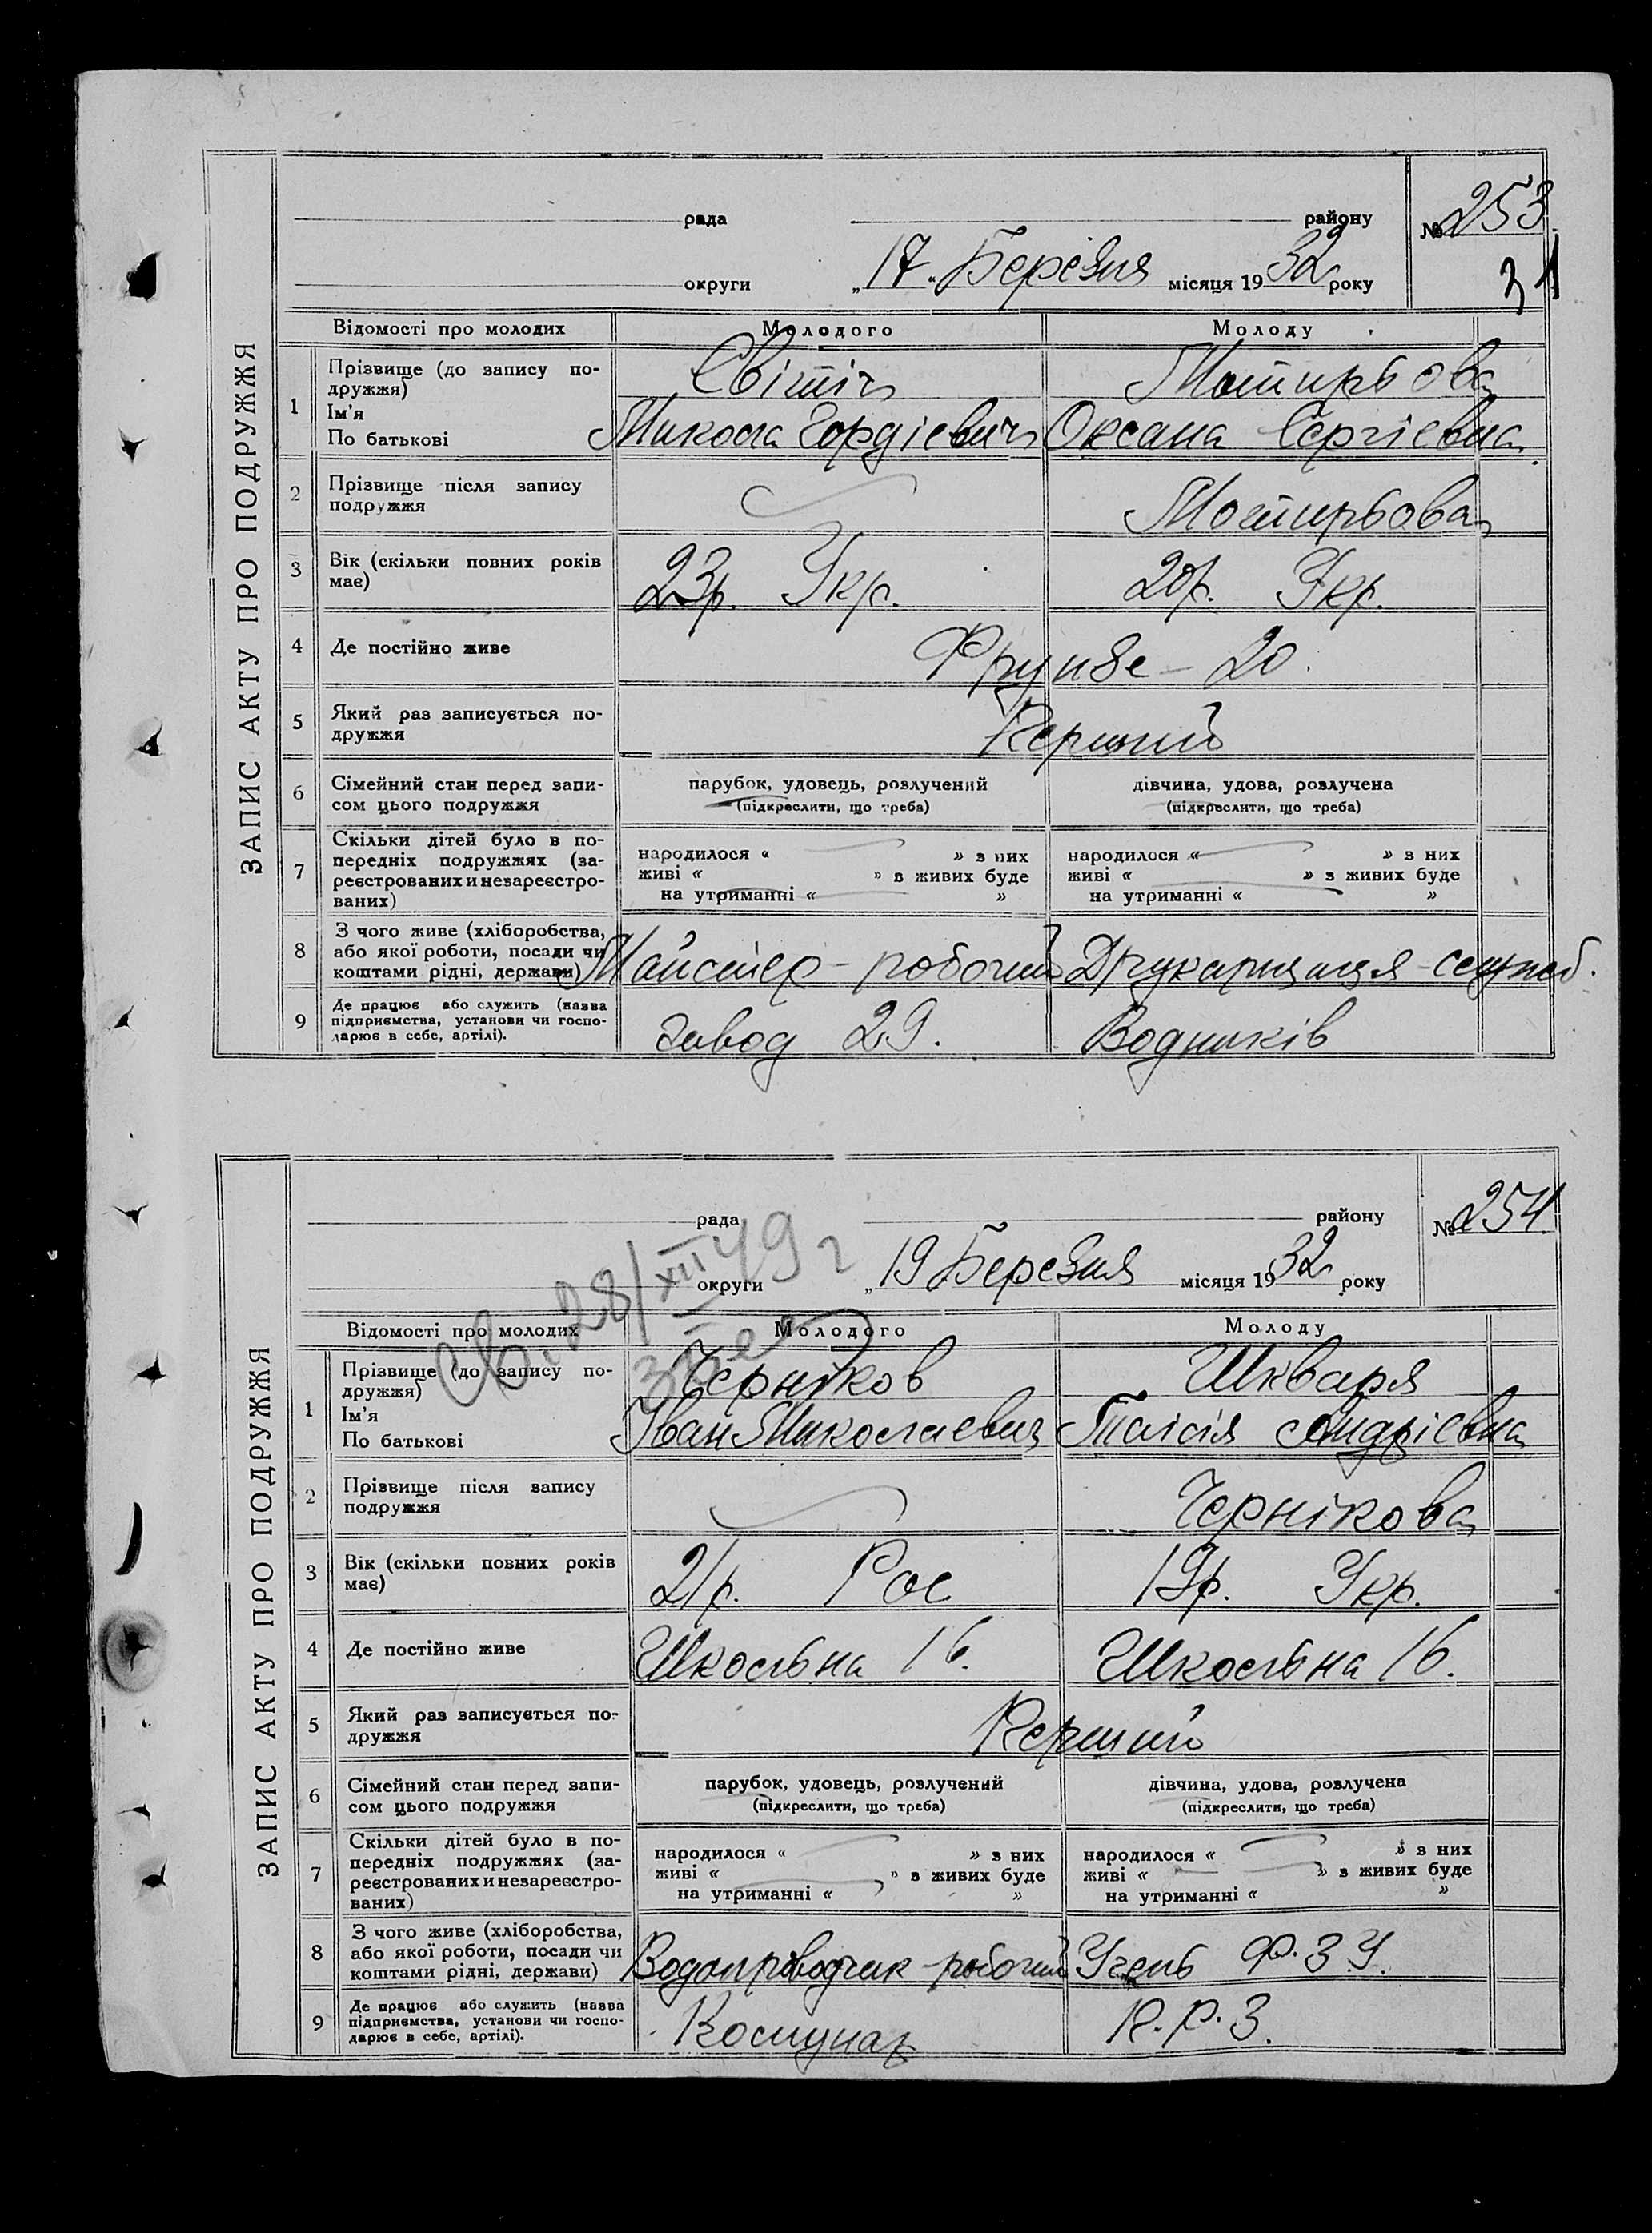 ЗАПИС АКТУ ПРО ПОДРУЖЖЯ
рада району № 253
31
округи „17“ Березня місяця 1932 року
Відомості про молодих Молодого Молоду
1 Прізвище (до запису подружжя) Світіч
Ім'я По батькові Микола Гордієвич Оксана Сергієвна
2 Прізвище після запису подружжя
3 Вік (скільки повних років має) 23р. Укр. 20р. Укр.
4 Де постійно живе Фрунзе - 20.
5 Який раз записується подружжя Перший
6 Сімейний стан перед записом цього подружжя парубок, удовець, розлучений дівчина, удова, розлучена
(підкреслити, що треба) (підкреслити, що треба)
7 Скільки дітей було в попередніх подружжях (зареєстрованих и незареєстрованих)
народилося « » з них народилося « » з них
живі « » в живих буде живі « » з живих буде
на утриманні « » на утриманні « »
8 З чого живе (хліборобства, або якої роботи, посади чи коштами рідні, держави) Майстер - робочий Друкарщиця - служб.
9 Де працює або служить (назва підприємства, установи чи господарює в себе, артілі). Завод 29. Водників
ЗАПИС АКТУ ПРО ПОДРУЖЖЯ
рада району № 254
округи „19 Березня місяця 1932 року
Св. 28/XII 49 г
Відомості про молодих Молодого Молоду
1 Прізвище (до запису подружжя) Черніков Шкваря
Ім'я По батькові Іван Николаевич Таісія Андріевна
2 Прізвище після запису подружжя Чернікова
3 Вік (скільки повних років має) 21р. Рос 19р. Укр.
4 Де постійно живе Шкостьна 16. Шкостьна 16.
5 Який раз записується подружжя Перший
6 Сімейний стан перед записом цього подружжя парубок, удовець, розлучений дівчина, удова, розлучена
(підкреслити, що треба) (підкреслити, що треба)
7 Скільки дітей було в попередніх подружжях (зареєстрованих и незареєстрованих)
народилося « » з них народилося « » з них
живі « » в живих буде живі « » з живих буде
на утриманні « » на утриманні « »
8 З чого живе (хліборобства, або якої роботи, посади чи коштами рідні, держави) Водопроводчик - робочий Учень Ф.З У.
9 Де працює або служить (назва підприємства, установи чи господарює в себе, артілі). П.Р.З.